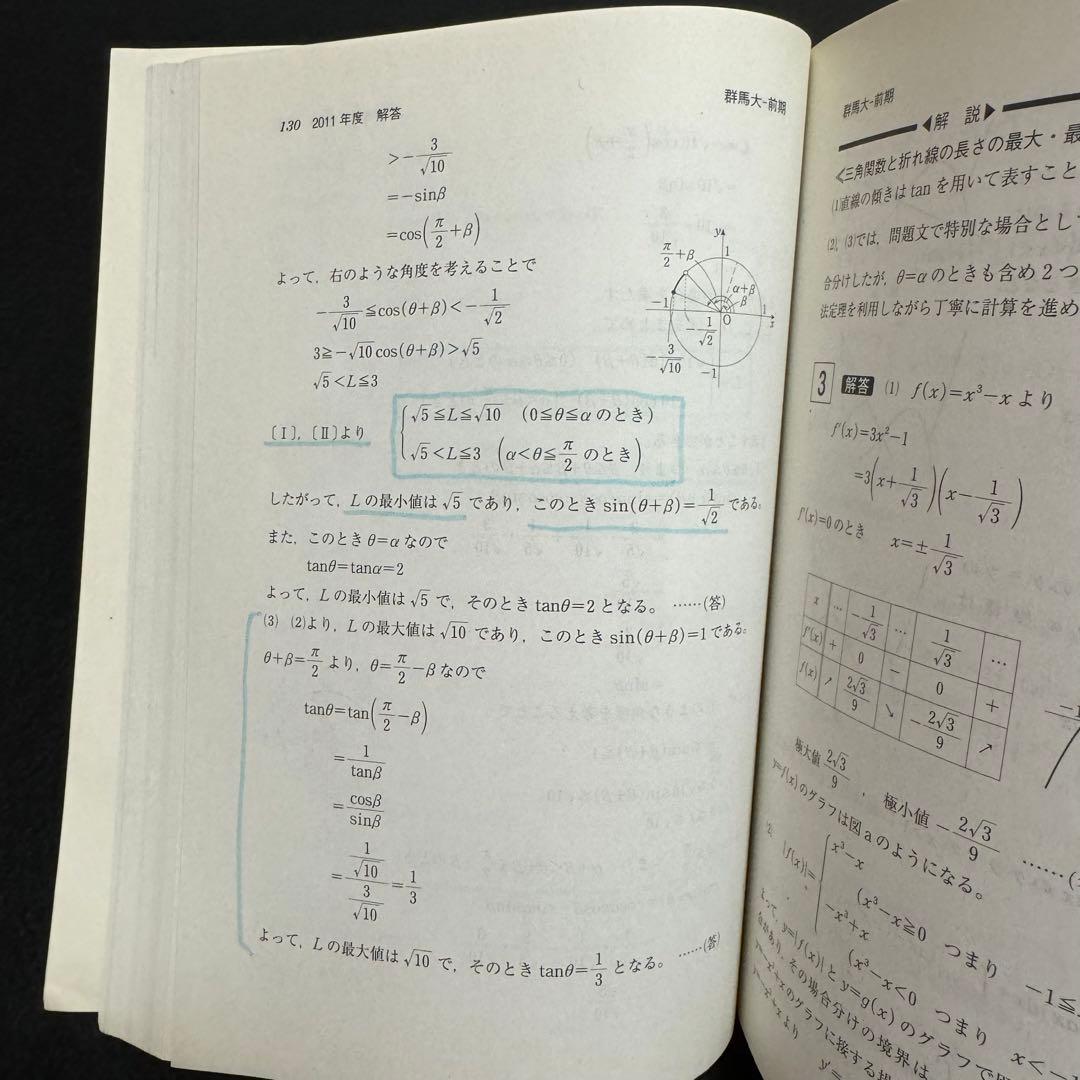 130 2011年度 解答
群馬大-前期
>-3/√10
=-sinβ
=cos(π/2+β)
よって，右のような角度を考えることで
-3/√10≦cos(θ+β)<-1/√2
3≧-√10cos(θ+β)>√5
√5<L≦3
y
π/2+β
1
α+β
β
-1
O
1
x
-1/√2
-3/√10
-1
〔Ⅰ〕，〔Ⅱ〕より
√5≦L≦√10 (0≦θ≦αのとき)
√5<L≦3 (α<θ≦π/2のとき)
したがって，Lの最小値は√5であり，このときsin(θ+β)=1/√2である。
また，このときθ=αなので
tanθ=tanα=2
よって，Lの最小値は√5で，そのときtanθ=2となる。 ……(答)
(3) (2)より，Lの最大値は√10であり，このときsin(θ+β)=1である。
θ+β=π/2より，θ=π/2-βなので
tanθ=tan(π/2-β)
=1/tanβ
=cosβ/sinβ
=(1/√10)/(3/√10)=1/3
よって，Lの最大値は√10で，そのときtanθ=1/3となる。 ……(答)
群馬大-前期
◀解 説▶
≪三角関数と折れ線の長さの最大・最
(1)直線の傾きはtanを用いて表すこと
(2)，(3)では，問題文で特別な場合とし
合分けしたが，θ=αのときも含め2つ
法定理を利用しながら丁寧に計算を進め
3 解答 (1) f(x)=x³-xより
f'(x)=3x²-1
=3(x+1/√3)(x-1/√3)
f'(x)=0のとき x=±1/√3
x … -1/√3 … 1/√3 …
f'(x) + 0 - 0 +
f(x) ↗ 2√3/9 ↘ -2√3/9 ↗
極大値 2√3/9，極小値 -2√3/9 ……(
y=f(x)のグラフは図aのようになる。
(2) |f(x)|=
x³-x (x³-x≧0 つまり -1≦
-x³+x (x³-x<0 つまり x<-
よって，y=|f(x)|とy=g(x)のグラフで
合があり，その場合分けの境界は，
y=-x³+xのグラフに接する
y=-x³+xより
y'=